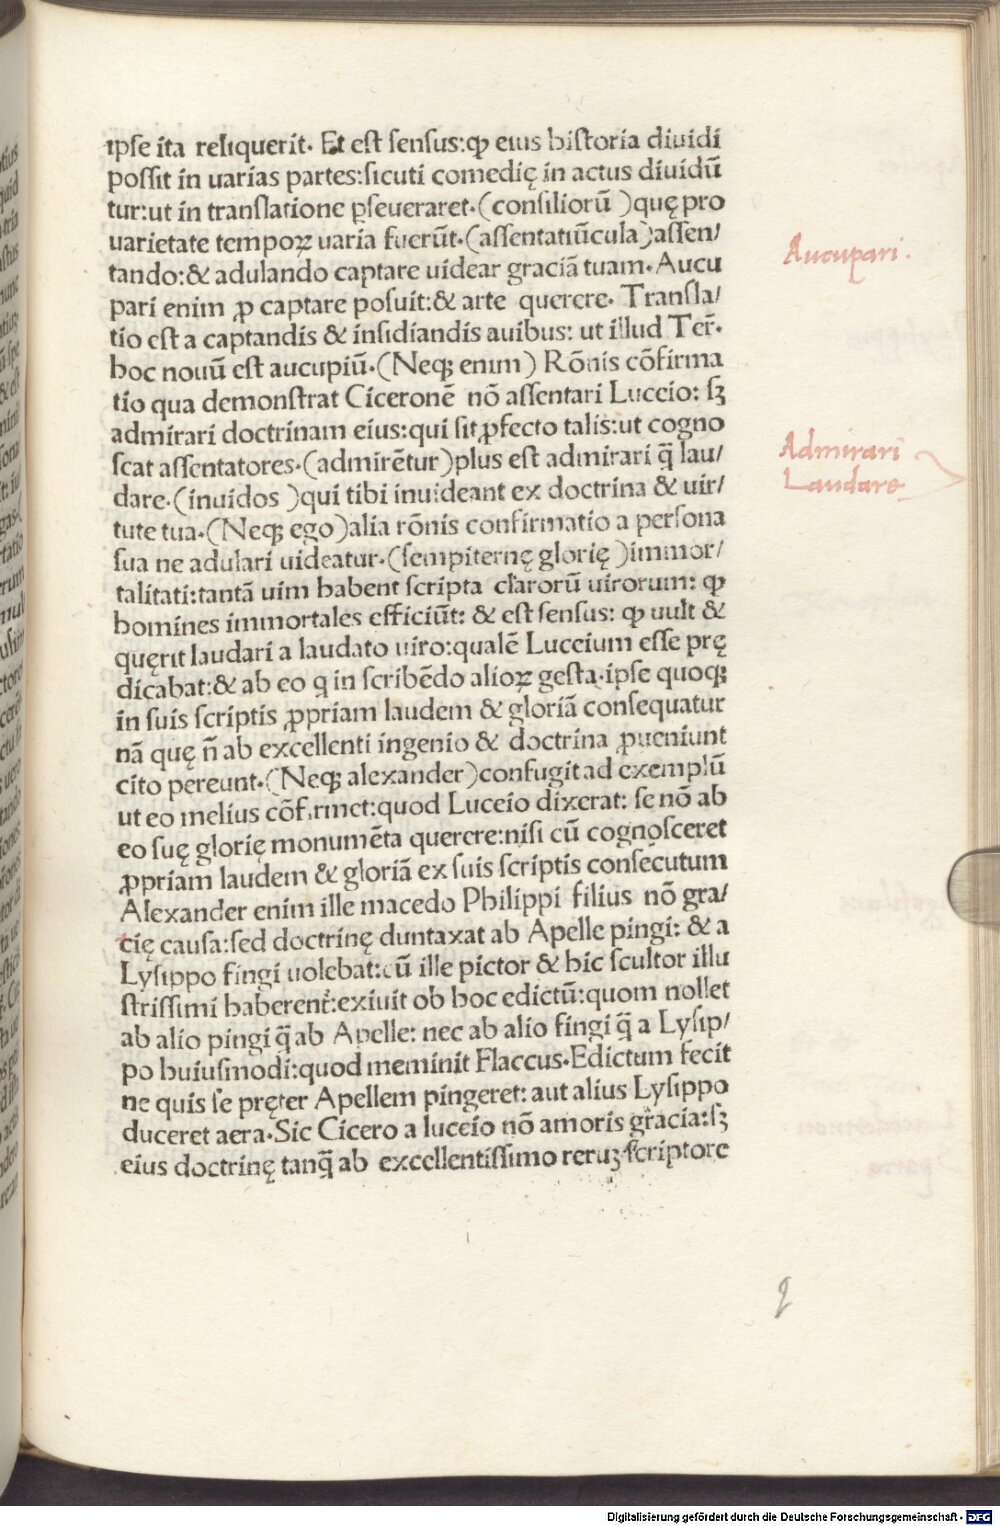 ipse ita reliquerit. Et est sensus:ꝙ eius historia diuidi
possit in uarias partes:sicuti comedię in actus diuidū
tur:ut in translatione ꝑseueraret.(consiliorū )quę pro
uarietate tempoꝝ uaria fuerūt.(assentatiūcula)assen/
tando:& adulando captare uidear graciā tuam.Aucu
pari enim ꝓ captare posuit:& arte querere. Transla/
tio est a captandis & insidiandis auibus: ut illud Ter̄.
hoc nouū est aucupiū.(Neqꝫ enim) Rōnis cōfirma
tio qua demonstrat Ciceronē nō assentari Lucceio: sꝫ
admirari doctrinam eius:qui sit ꝓfecto talis:ut cogno
scat assentatores.(admirētur)plus est admirari q̄ lau/
dare.(inuidos )qui tibi inuideant ex doctrina & uir/
tute tua.(Neqꝫ ego)alia rōnis confirmatio a persona
sua ne adulari uideatur.(sempiternę glorię )immor/
talitati:tantā uim habent scripta clarorū uirorum: ꝙ
homines immortales efficiūt: & est sensus: ꝙ uult &
quęrit laudari a laudato uiro:qualē Lucceium esse prę
dicabat:& ab eo q in scribēdo alioꝝ gesta.ipse quoqꝫ
in suis scriptis ꝓpriam laudem & gloriā consequatur
nā quę n̄ ab excellenti ingenio & doctrina ꝓueniunt
cito pereunt.(Neqꝫ alexander)confugit ad exemplū
ut eo melius cōfirmet:quod Lucceio dixerat: se nō ab
eo suę glorię monumēta querere:nisi cū cognosceret
ꝓpriam laudem & gloriā ex suis scriptis consecutum
Alexander enim ille macedo Philippi filius nō gra/
cię causa:sed doctrinę duntaxat ab Apelle pingi: & a
Lysippo fingi uolebat:cū ille pictor & hic scultor illu
strissimi haberent̄:exiuit ob hoc edictū:quom nollet
ab alio pingi q̄ ab Apelle: nec ab alio fingi q̄ a Lysip/
po huiusmodi:quod meminit Flaccus.Edictum fecit
ne quis se pręter Apellem pingeret: aut alius Lysippo
duceret aera.Sic Cicero a lucceio nō amoris gracia:sꝫ
eius doctrinę tanq̄ ab excellentissimo reruꝫ scriptore
Aucupari.
Admirari
Laudare
Digitalisierung gefördert durch die Deutsche Forschungsgemeinschaft - DFG